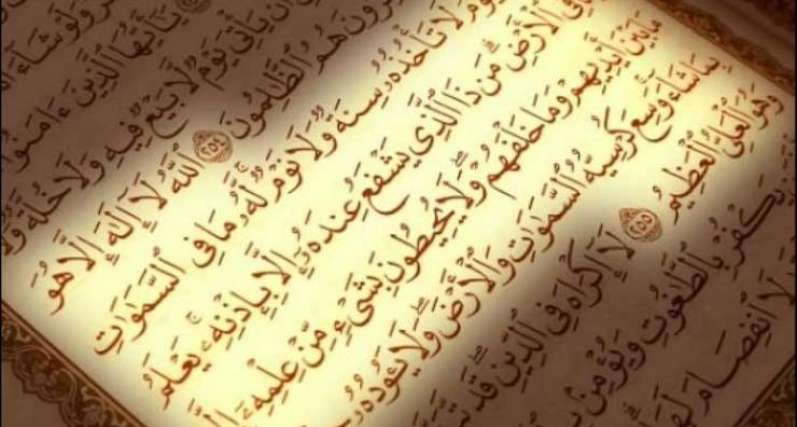 وَلَوْ شَآءَ
يَٰٓأَيُّهَا ٱلَّذِينَ ءَامَنُوٓا۟
أَن يَأْتِىَ يَوْمٌ لَّا بَيْعٌ فِيهِ وَلَا خُلَّةٌ
هُمُ ٱلظَّٰلِمُونَ ٢٥٤ ٱللَّهُ لَآ إِلَٰهَ إِلَّا هُوَ
لَا تَأْخُذُهُۥ سِنَةٌ وَلَا نَوْمٌ لَّهُۥ مَا فِى ٱلسَّمَٰوَٰتِ
فِى ٱلْأَرْضِ مَن ذَا ٱلَّذِى يَشْفَعُ عِندَهُۥٓ إِلَّا بِإِذْنِهِۦ يَعْلَمُ
مَا بَيْنَ أَيْدِيهِمْ وَمَا خَلْفَهُمْ وَلَا يُحِيطُونَ بِشَىْءٍ مِّنْ عِلْمِهِۦٓ
بِمَا شَآءَ وَسِعَ كُرْسِيُّهُ ٱلسَّمَٰوَٰتِ وَٱلْأَرْضَ وَلَا يَـُٔودُهُۥ
وَهُوَ ٱلْعَلِىُّ ٱلْعَظِيمُ ٢٥٥ لَآ إِكْرَاهَ فِى ٱلدِّينِ قَد
يَكْفُرْ بِٱلطَّٰغُوتِ وَيُؤْمِنۢ
لَا ٱنفِصَامَ لَهَا